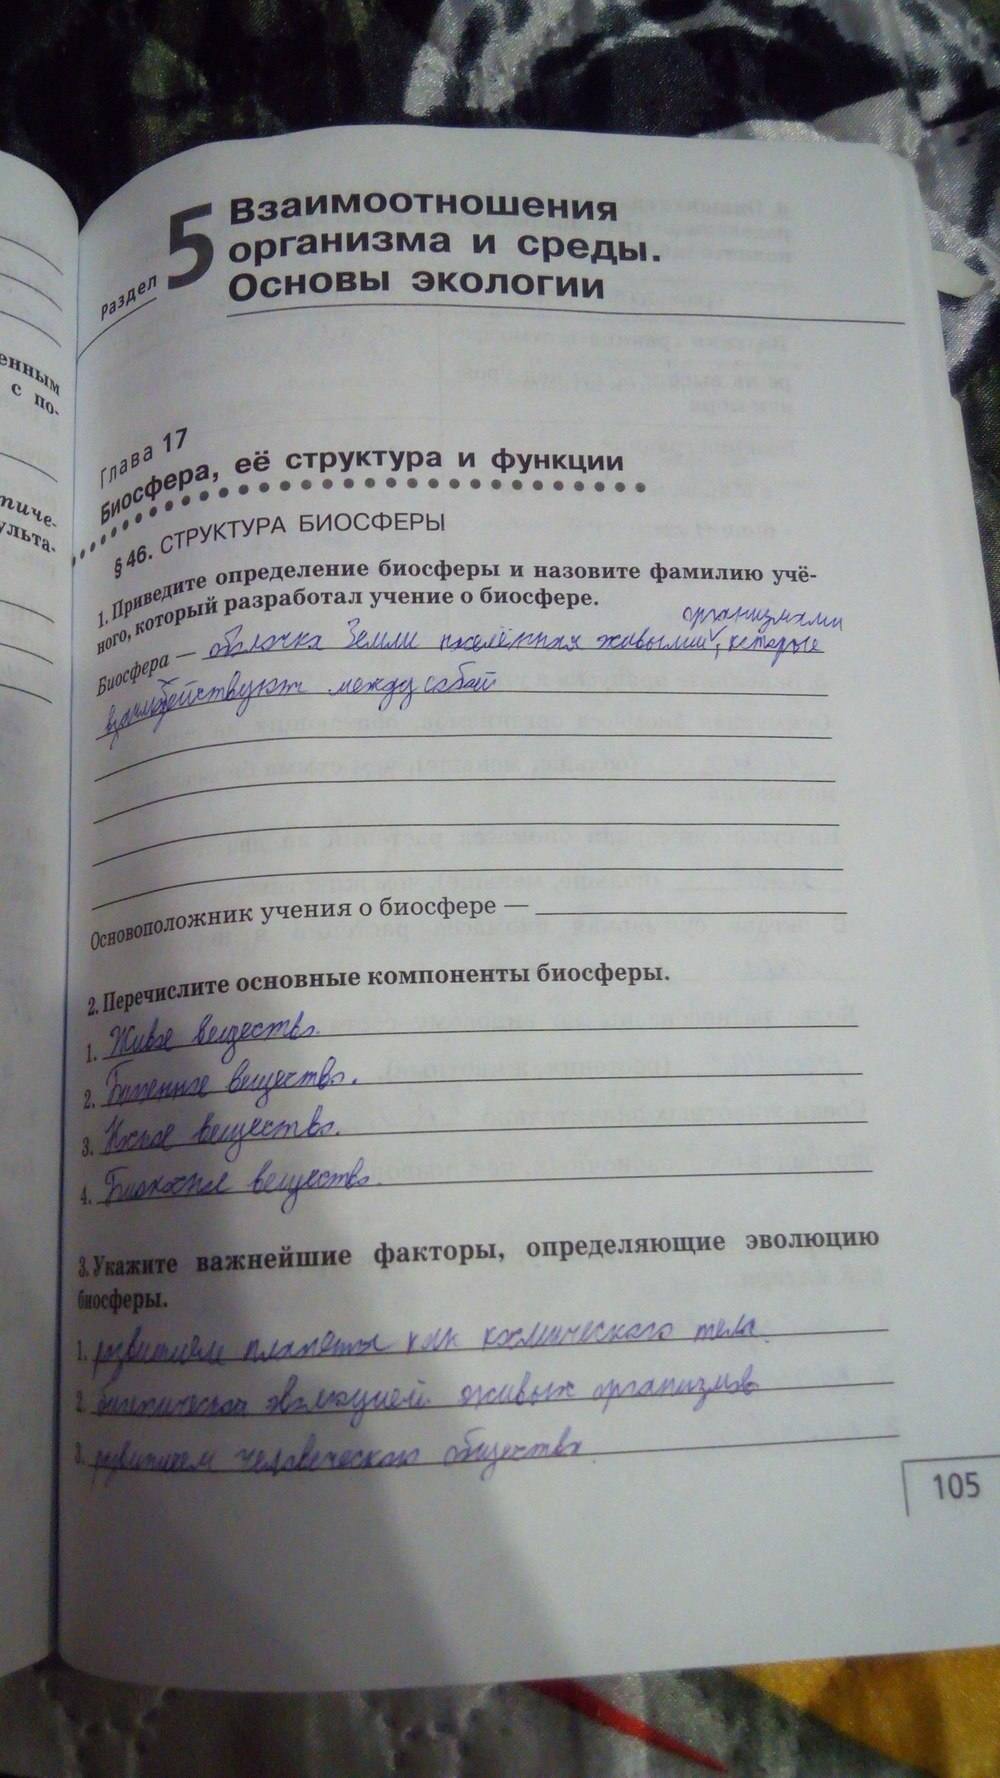 енным
с по-
тиче-
ульта-
Раздел 5 Взаимоотношения
организма и среды.
Основы экологии
Глава 17
Биосфера, её структура и функции
§ 46. СТРУКТУРА БИОСФЕРЫ
1. Приведите определение биосферы и назовите фамилию учё-
ного, который разработал учение о биосфере.
организмами
Биосфера — оболочка Земли населённая живыми, которые
взаимодействуют между собой
Основоположник учения о биосфере —
2. Перечислите основные компоненты биосферы.
1. Живое вещество.
2. Биогенное вещество.
3. Косное вещество.
4. Биокосное вещество.
3. Укажите важнейшие факторы, определяющие эволюцию
биосферы.
1. развитием планеты как космического тела.
2. биологической эволюцией живых организмов
3. развитием человеческого общества.
105